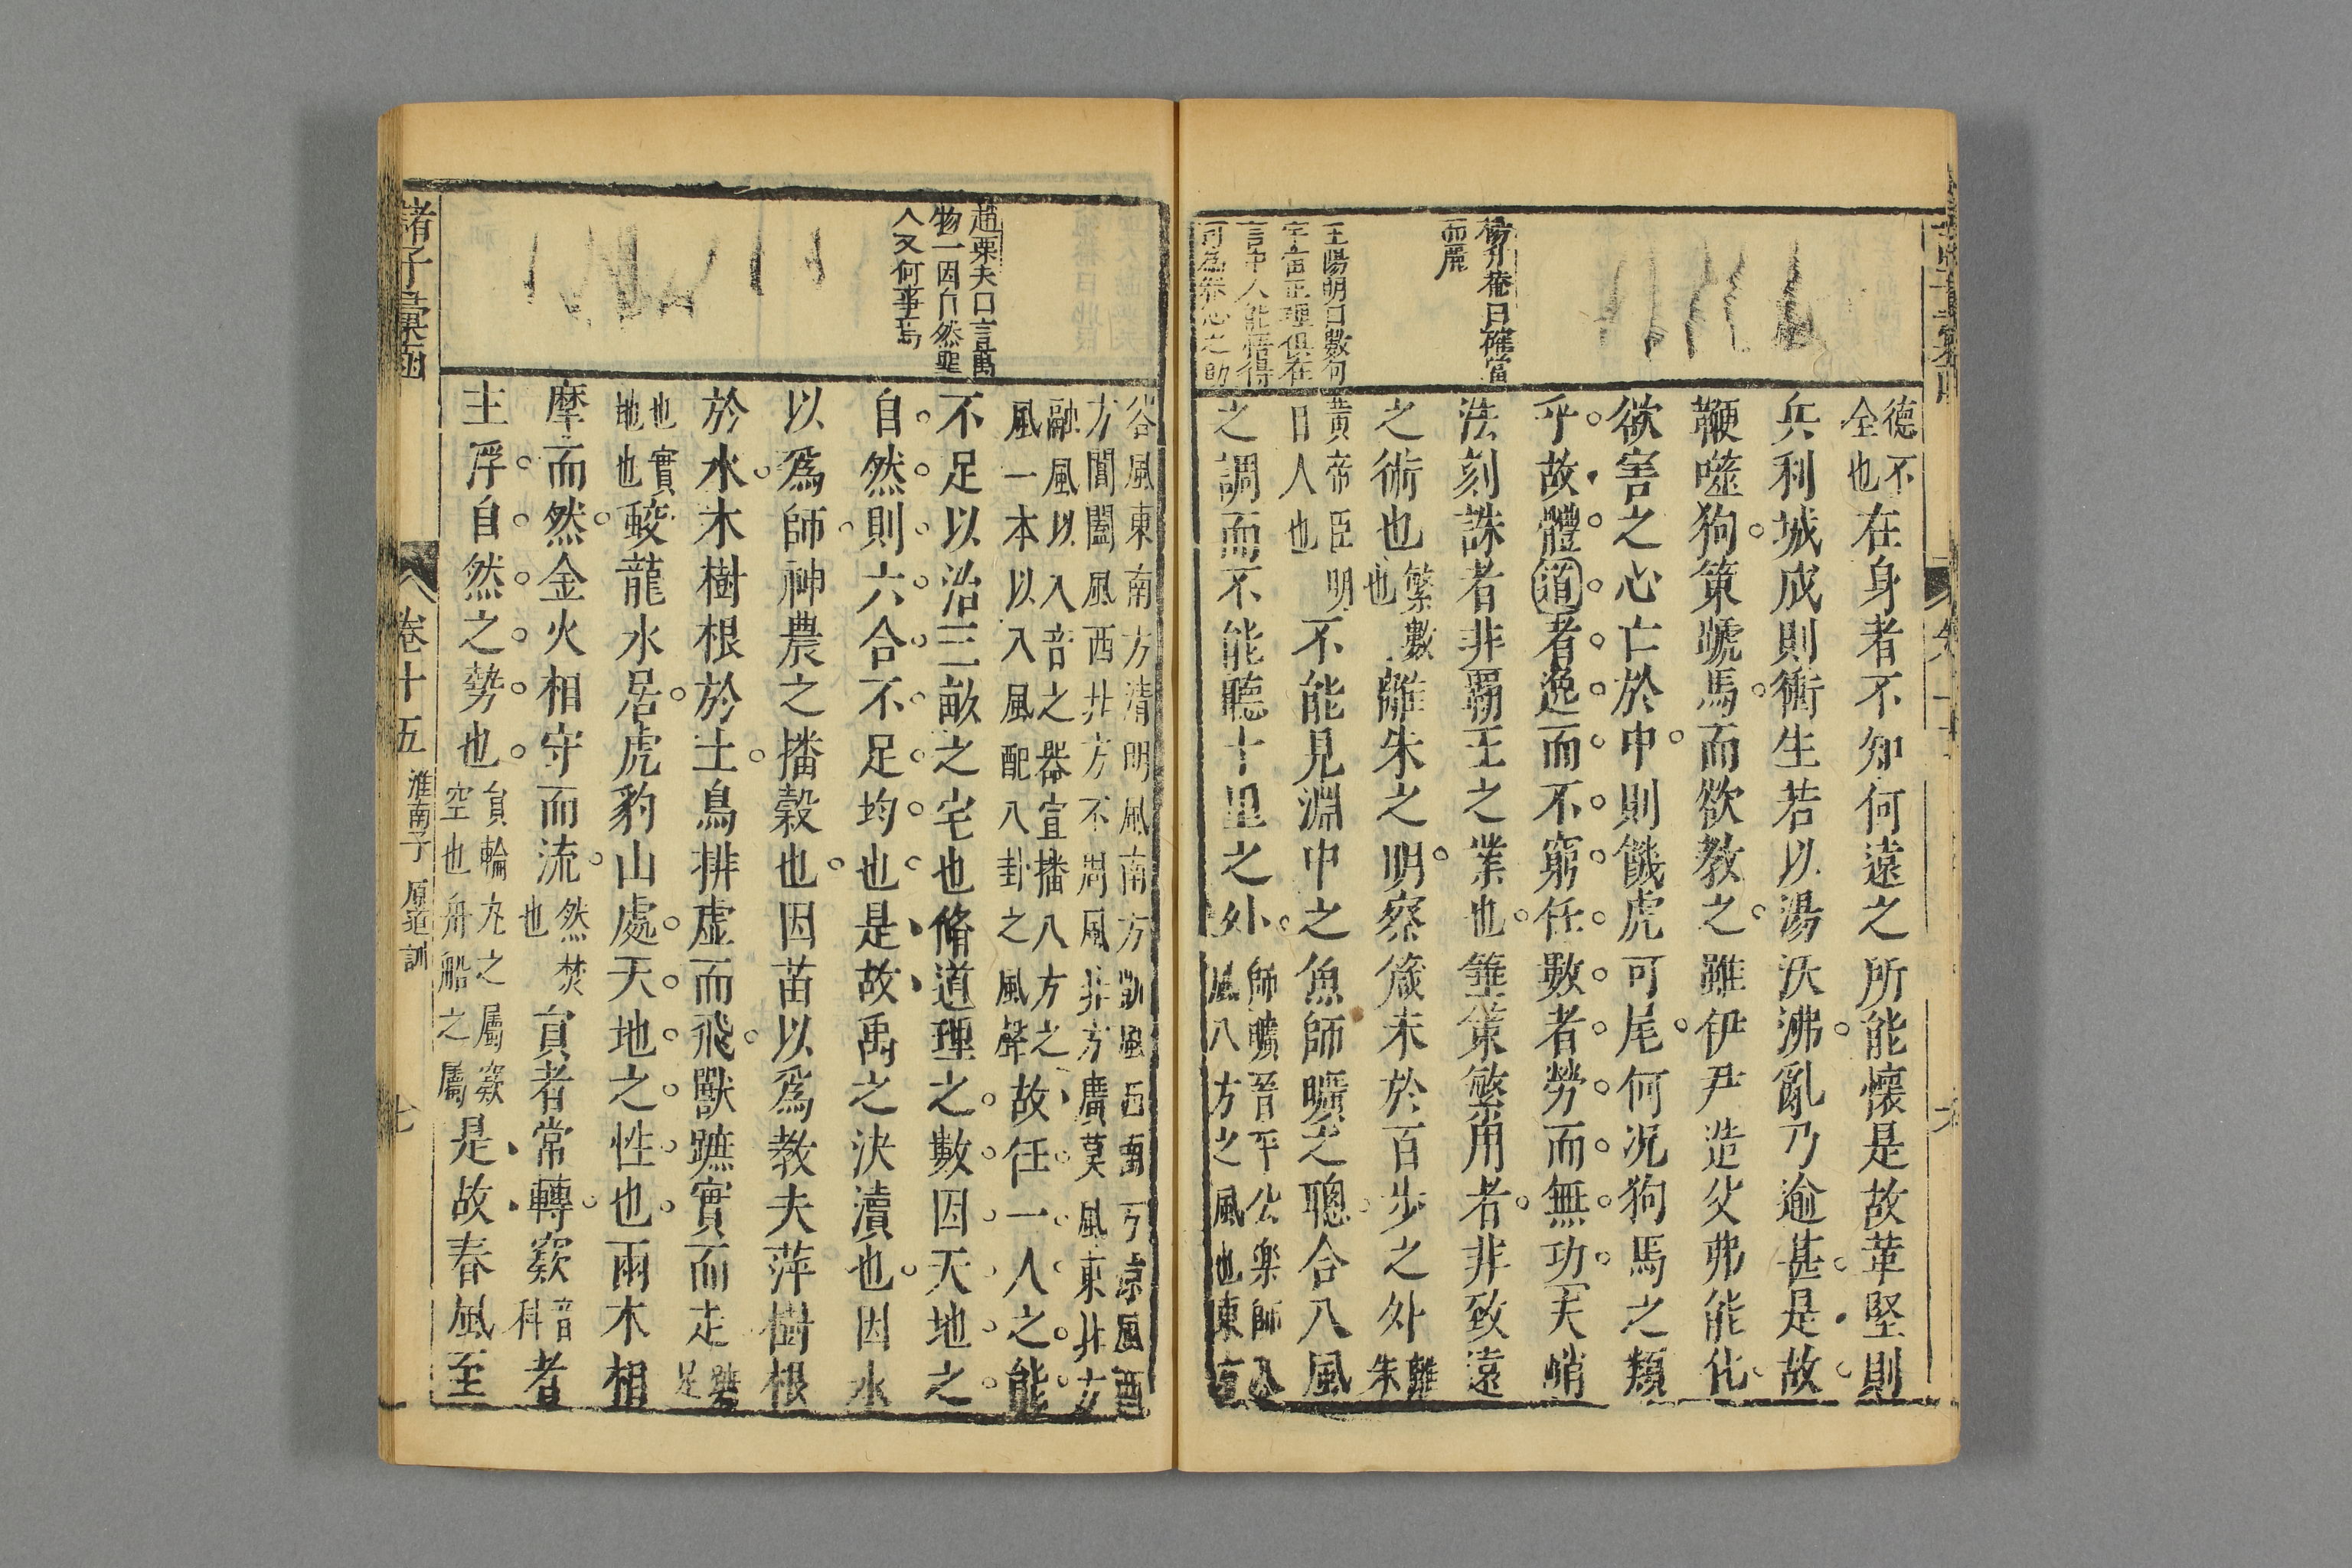 楊升菴曰確當
而麗
王陽明曰數句
宇宙正理俱在
言中人能悟得
可為養心之助
德不
全也
在身者不知何遠之所能懷是故革堅則
兵利城成則衝生若以湯沃沸亂乃逾甚是故
鞭噬狗策蹏馬而欲教之雖伊尹造父弗能化
欲害之心亡於中則饑虎可尾何况狗馬之類
乎故體道者逸而不窮任數者勞而無功夫峭
法刻誅者非霸王之業也箠策繁用者非致遠
之術也
繁數
也
離朱之明察箴末於百步之外
離
朱
黃帝臣明
目人也
不能見淵中之魚師曠之聰合八風
之調而不能聽十里之外
師曠晉平公樂師八
風八方之風也東方
谷風東南方清明風南方凱風西南方涼風西
方閶闔風西北方不周風北方廣莫風東北方
融風以八音之器宣播八方之
風一本以八風配八卦之風聲
故任一人之能
不足以治三畝之宅也脩道理之數因天地之
自然則六合不足均也是故禹之決瀆也因水
以爲師神農之播穀也因苗以爲教夫萍樹根
於水木樹根於土鳥排虛而飛獸蹠實而走
蹠
足
也實
地也
蛟龍水居虎豹山處天地之性也兩木相
摩而然金火相守而流
然焚
也
員者常轉窾
音
科
者
主浮自然之勢也
員輪丸之屬窾
空也舟船之屬
是故春風至
趙栗夫曰言萬
物一因自然聖
人又何事焉
諸子彙函
卷十五
淮南子
原道訓
七